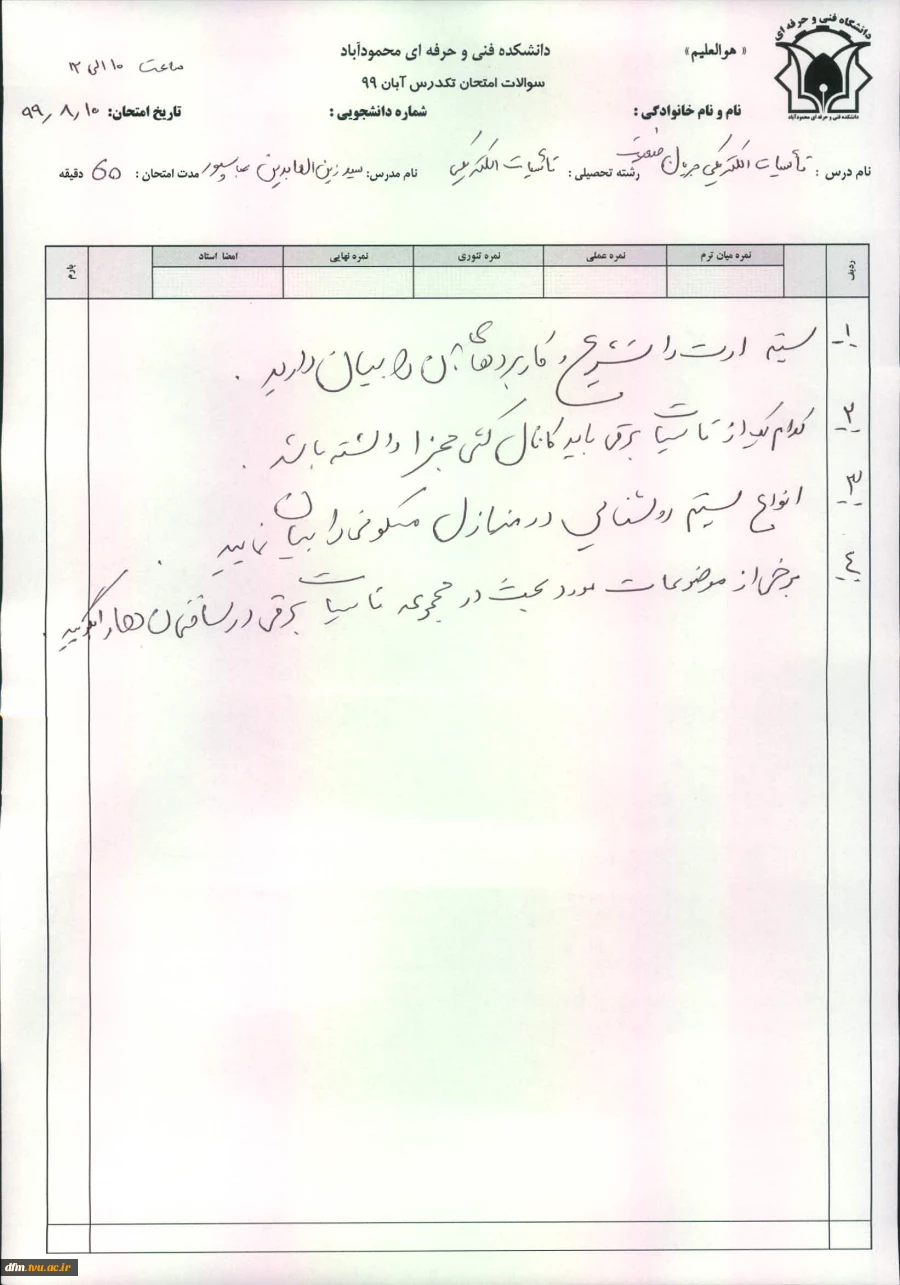 دانشگاه فنی و حرفه ای
دانشکده فنی و حرفه ای محمودآباد
« هوالعلیم»
دانشکده فنی و حرفه ای محمودآباد
ساعت ۱۰ الی ۱۲
سوالات امتحان تکدرس آبان ۹۹
نام و نام خانوادگی : شماره دانشجویی : تاریخ امتحان: ۹۹٫۸٫۱۰
نام درس : تأسیسات الکتریکی جریان ضعیف رشته تحصیلی : تأسیسات الکتریکی نام مدرس: سید زین العابدین عباسپور مدت امتحان : 60 دقیقه
ردیف نمره میان ترم نمره عملی نمره تئوری نمره نهایی امضا استاد بارم
۱- سیستم ارت را تشریح و کاربردهای آن را بیان دارید .
۲- کدام یک از تاسیسات برقی باید کانال کشی مجزا داشته باشد .
۳- انواع سیستم روشنایی در منازل مسکونی را بیان نمایید .
٤- برخی از موضوعات مورد بحث در مجموعه تاسیسات برقی در ساختمان ها را بگویید .
dfm.tvu.ac.ir